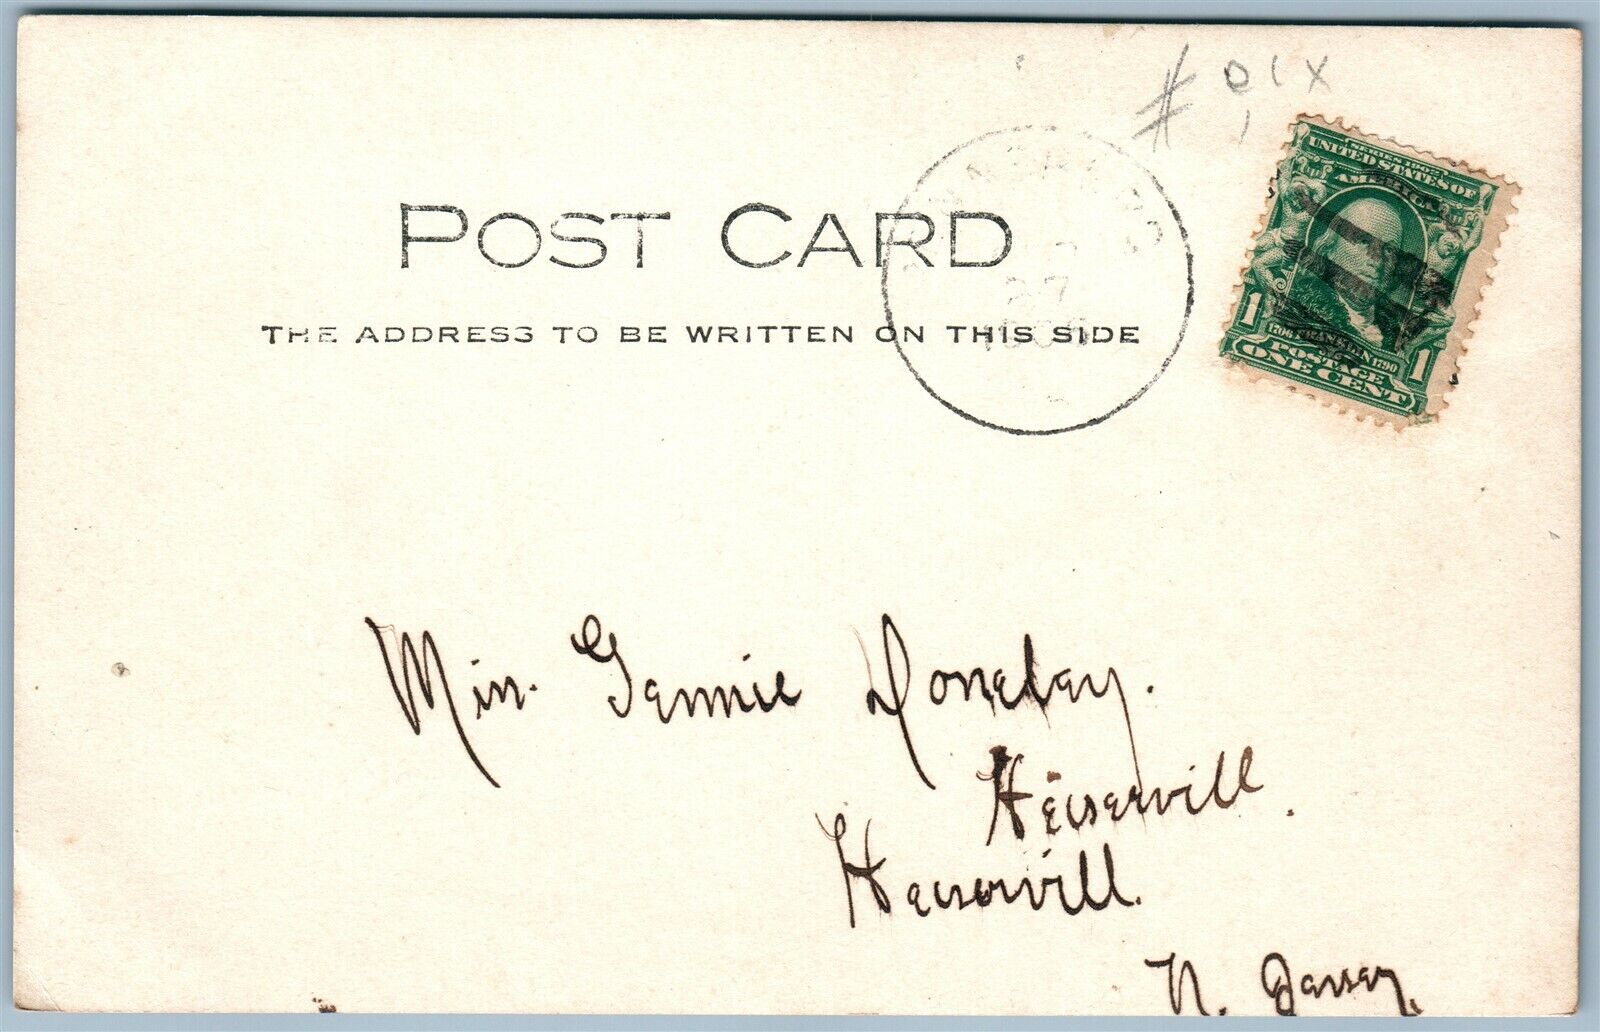 # 
POST CARD
THE ADDRESS TO BE WRITTEN ON THIS SIDE
27
SERIES 1902
UNITED STATES OF
AMERICA
1 1
POSTAGE
ONE CENT
Min. Jennie Doneley.
Heiservill.
Heiservill.
N. Jersey.